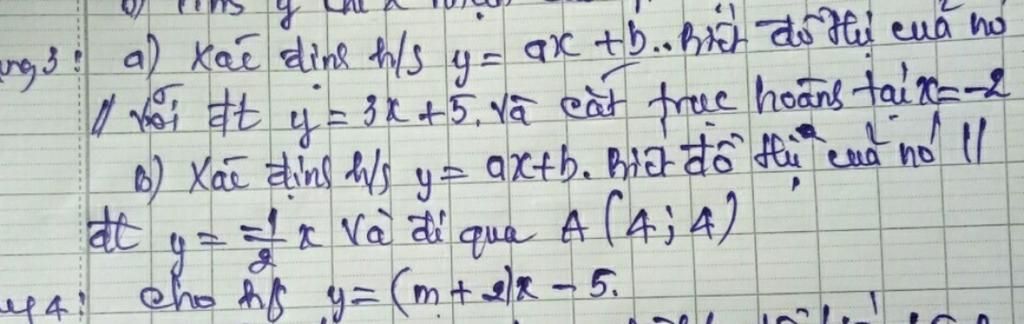 3: a) Xác định h/s y = ax + b.. Biết đồ thị của nó
// với đt y = 3x + 5. Và cắt trục hoành tại x = -2
b) Xác định h/s y = ax+b. Biết đồ thị của nó //
đt y = -1/2 x Và đi qua A (4; 4)
4: Cho h/s y = (m + 2)x - 5.